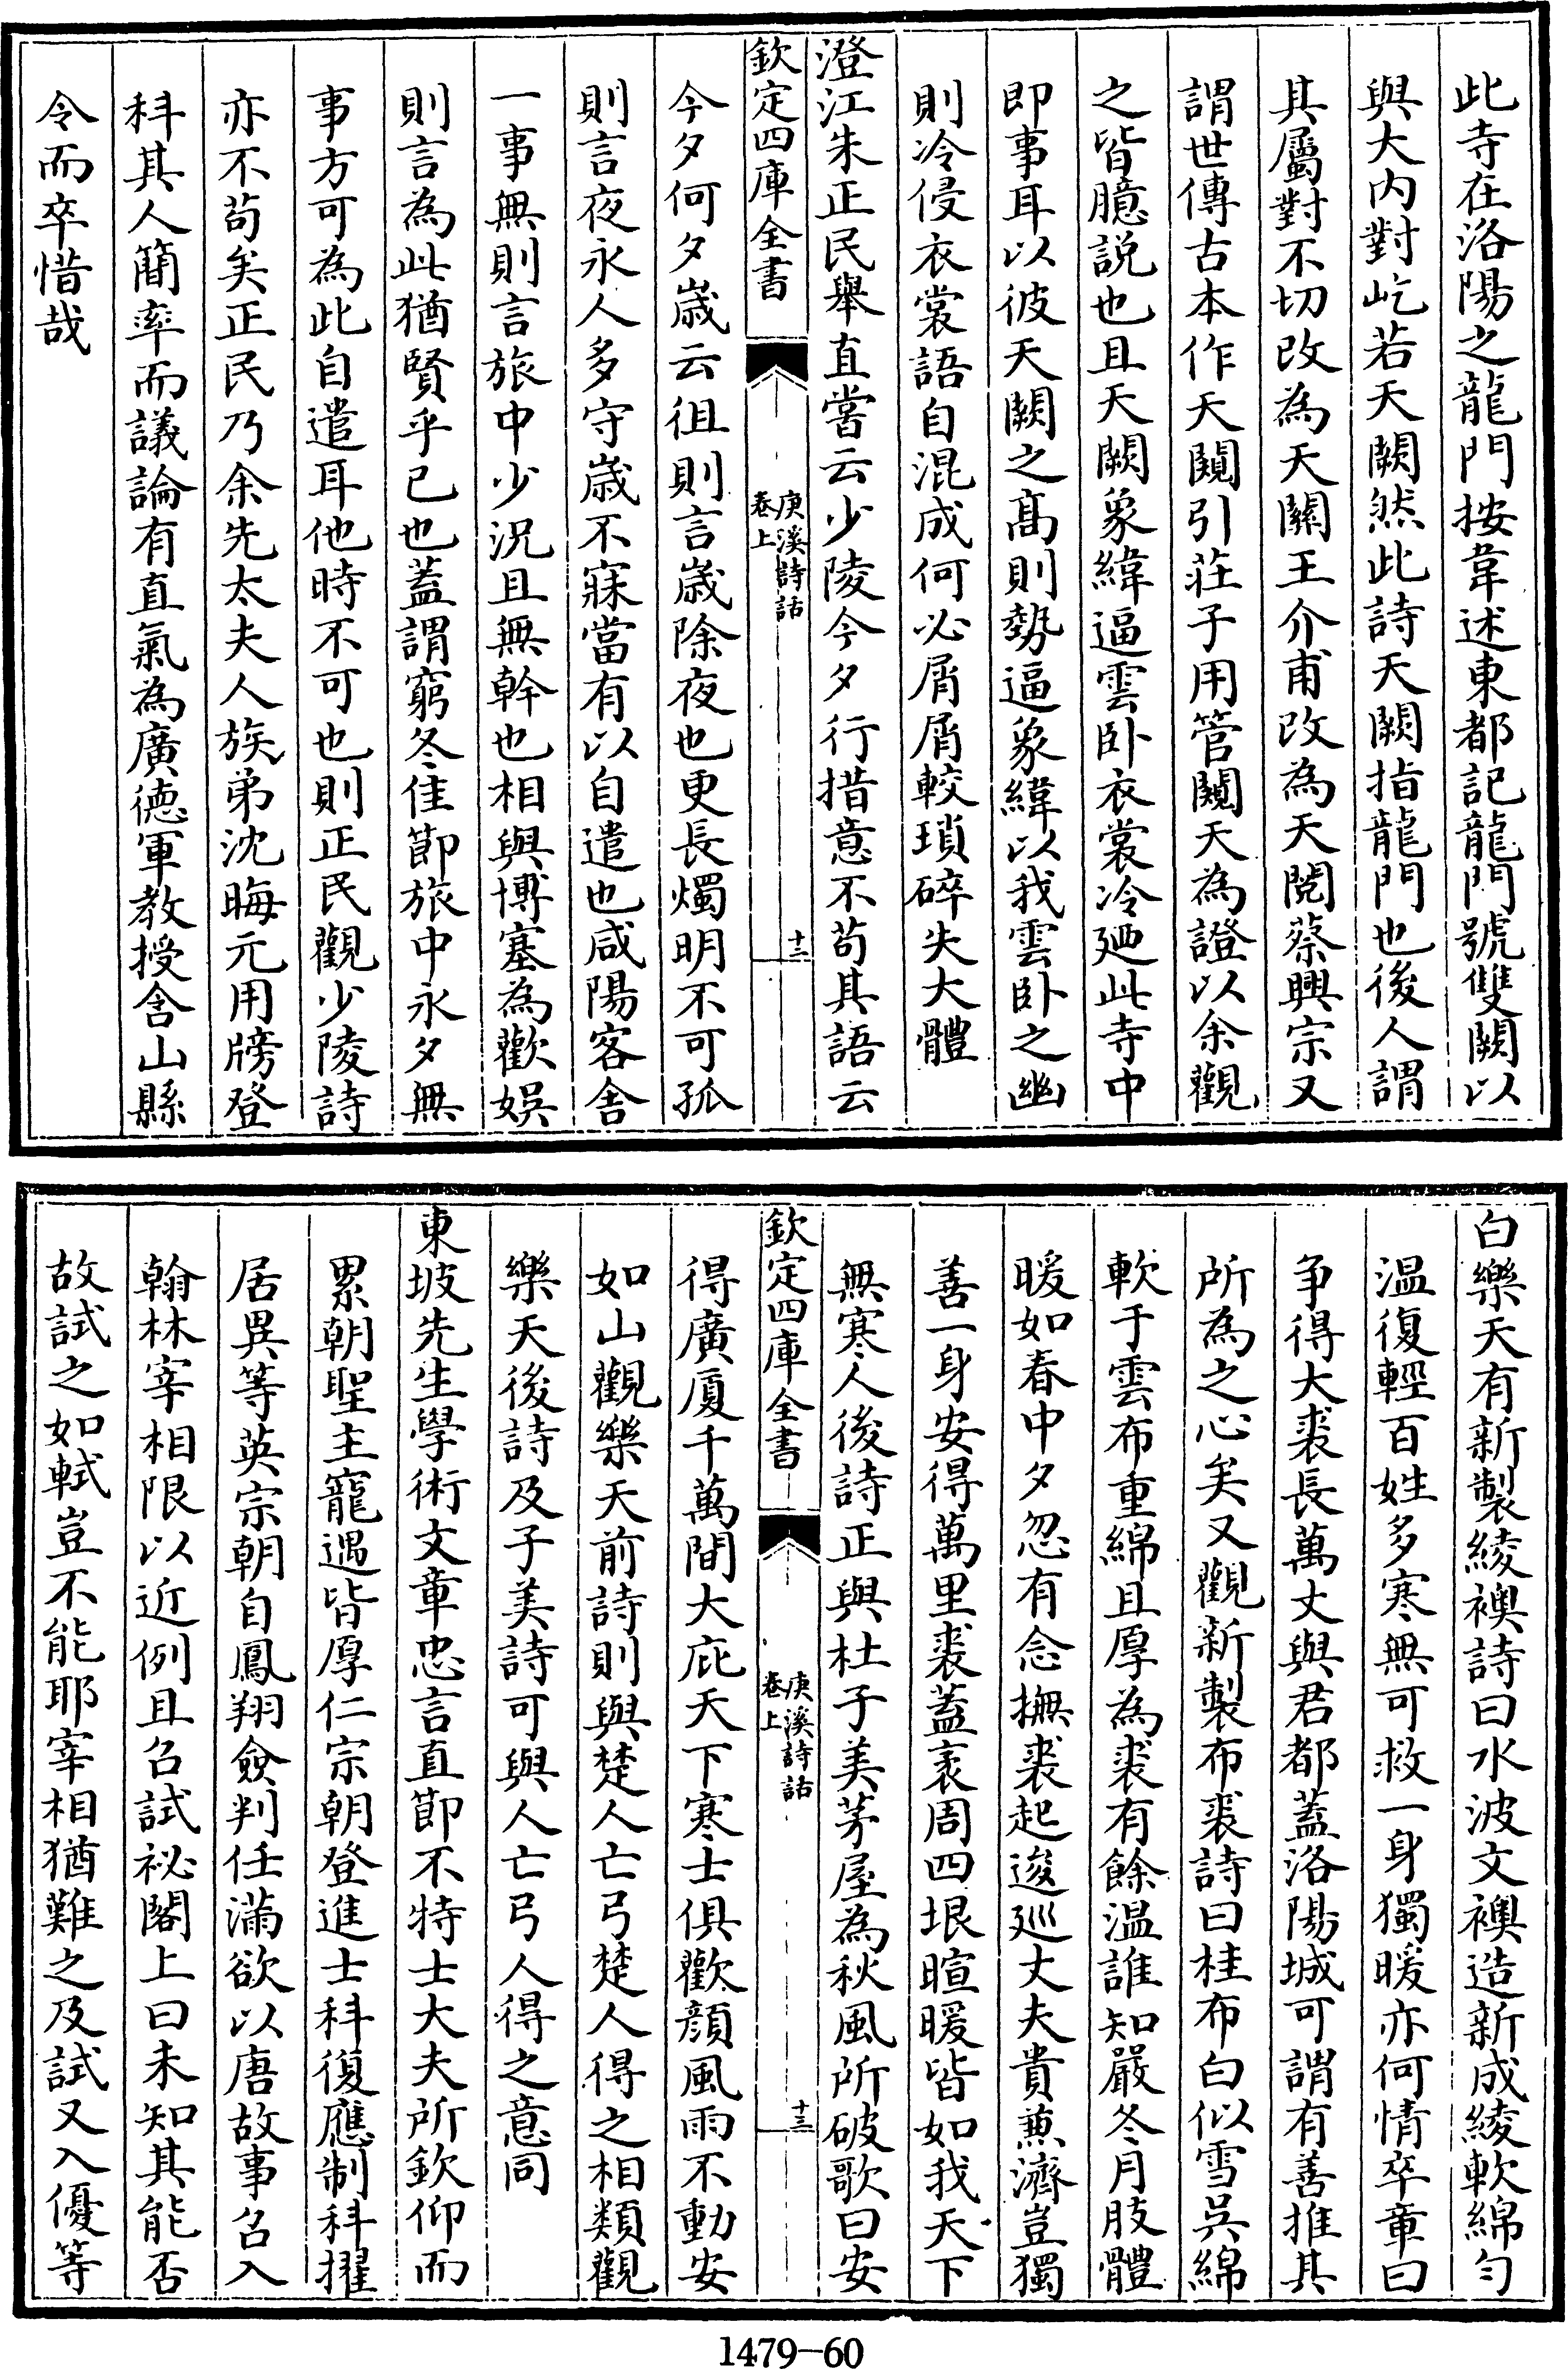 此寺在洛陽之龍門按韋述東都記龍門號雙闕以
與大内對屹若天闕然此詩天闕指龍門也後人謂
其屬對不切改為天關王介甫改為天閱蔡興宗又
謂世傳古本作天闚引莊子用管闚天為證以余觀
之皆臆説也且天闕象緯逼雲卧衣裳冷廼此寺中
即事耳以彼天闕之髙則勢逼象緯以我雲卧之幽
則冷侵衣裳語自混成何必屑屑較瑣碎失大體
澄江朱正民舉直嘗云少陵今夕行措意不苟其語云
欽定四庫全書
庚溪詩話
卷上
十二
今夕何夕嵗云徂則言嵗除夜也更長燭明不可孤
則言夜永人多守嵗不寐當有以自遣也咸陽客舍
一事無則言旅中少況且無幹也相與博塞為歡娯
則言為此猶賢乎已也蓋謂窮冬佳節旅中永夕無
事方可為此自遣耳他時不可也則正民觀少陵詩
亦不苟矣正民乃余先太夫人族弟沈晦元用牓登
科其人簡率而議論有直氣為廣徳軍教授含山縣
令而卒惜哉
白樂天有新製綾襖詩曰水波文襖造新成綾軟綿勻
温復輕百姓多寒無可救一身獨暖亦何情卒章曰
争得大裘長萬丈與君都蓋洛陽城可謂有善推其
所為之心矣又觀新製布裘詩曰桂布白似雪吳綿
軟于雲布重綿且厚為裘有餘温誰知嚴冬月肢體
暖如春中夕忽有念撫裘起逡廵丈夫貴兼濟豈獨
善一身安得萬里裘蓋裹周四垠暄暖皆如我天下
無寒人後詩正與杜子美茅屋為秋風所破歌曰安
欽定四庫全書
庚溪詩話
卷上
十三
得廣厦千萬間大庇天下寒士俱歡顔風雨不動安
如山觀樂天前詩則與楚人亡弓楚人得之相類觀
樂天後詩及子美詩可與人亡弓人得之意同
東坡先生學術文章忠言直節不特士大夫所欽仰而
累朝聖主寵遇皆厚仁宗朝登進士科復應制科擢
居異等英宗朝自鳳翔僉判任滿欲以唐故事召入
翰林宰相限以近例且召試祕閣上曰未知其能否
故試之如軾豈不能耶宰相猶難之及試又入優等
1479-60